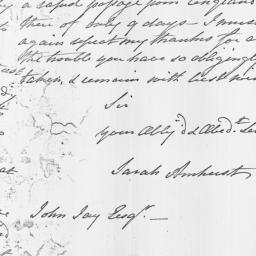 a rapid passage from England
there of only 9 days – I must
again repeat my thanks for a
the trouble you have so obligingly
taken, & remain with best
Sir
your Oblig'd & Obed.t Se
Sarah Amherst
John Jay Esq.r —